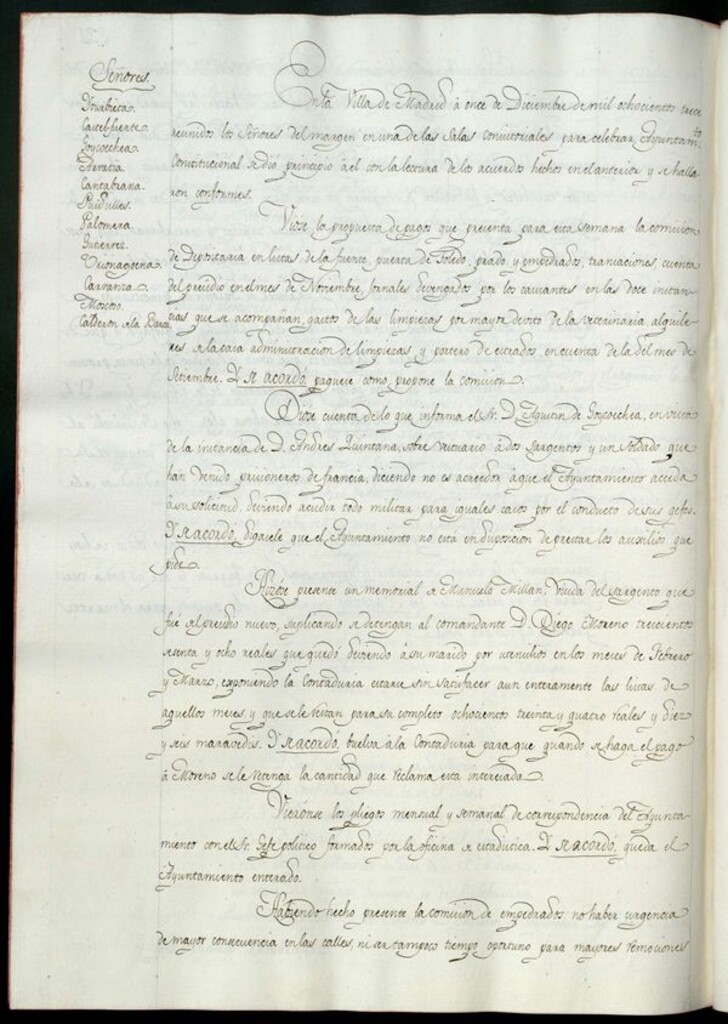 Señores.
Yturbieta.
Castel-fuerte.
Goycoechea.
Arratia.
Cantabrana.
Palomera.
Gutierrez.
Carranza.
Moscoso.
Calderon de la Barca
En la Villa de Madrid à once de Diciembre de mil ochocientos trece
reunidos los Señores del margen en una de las Salas consistoriales para celebrar Ayuntamto
Constitucional se dió principio á el con la lectura de los acuerdos hechos en el anterior y se halla-
ron conformes.
Vióse la propuesta de pagos que presenta para esta semana la comision
de Depositaría en listas de la fuente, puerta de Toledo, prado, y empedrados, traniaciones, cuenta
del presidio en el mes de Noviembre, jornales devengados por los causantes en las doce instan-
cias que se acompañan, gastos de las limpiezas por mayor de la veterinaria alquile-
res à la casa administracion de limpiezas, y portero de estrados, en cuenta de la del mes de
Setiembre. Y se acordó, paguese como propone la comision.
Dióse cuenta de lo que informa el Sr. D. Agustin de Goycoechea, en vista
de la instancia de D. Andres Quintana, sobre vestuario à dos Sargentos y un Soldado que
han venido prisioneros de francia, diciendo no es acreedor à que el Ayuntamiento acceda
à su solicitud, deviendo acudir todo militar para iguales casos por el conducto de sus gefes.
Y se acordó, digasele que el Ayuntamiento no está en disposicion de prestar los auxilios que
pide.
Hizose presente un memorial de Manuela Millan, Viuda del sargento que
fué del presidio nuevo, suplicando se detengan al comandante D. Diego Moreno trescientos
sesenta y ocho reales que quedó deviendo à su marido por utensilios en los meses de Febrero
y Marzo, exponiendo la Contaduría estarse sin satisfacer aun enteramente las listas de
aquellos meses, y que se le restan para su completo ochocientos treinta y quatro reales y diez
y seis maravedis. Y se acordó, buelva à la Contaduría para que quando se haga el pago
à Moreno se le retenga la cantidad que reclama esta interesada.
Vieronse los pliegos mensual y semanal de correspondencia del Ayunta-
miento con el Sr. Gefe politico formados por la oficina de estadistica. Y se acordó, queda el
Ayuntamiento enterado.
Habiendo hecho presente la comision de empedrados no haber urgencia
de mayor consecuencia en las calles, ni ser tampoco tiempo oportuno para mayores remociones